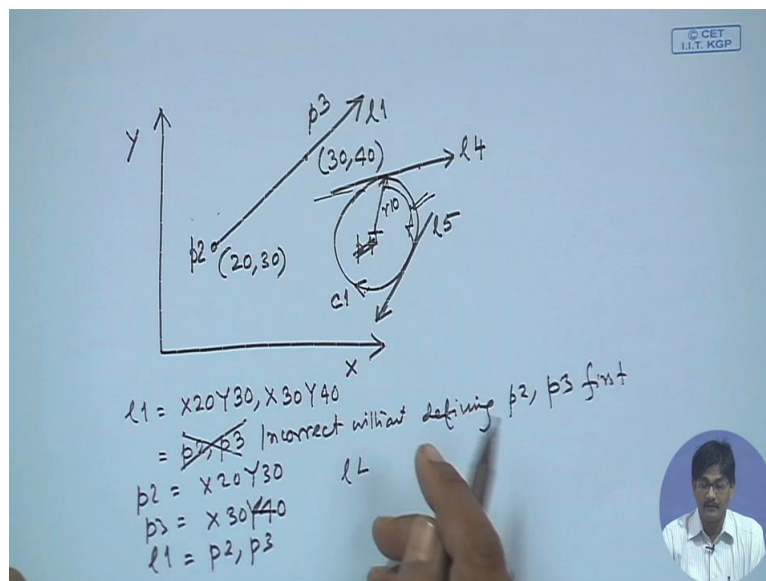 © CET
I.I.T. KGP
Y
p3
l1
(30,40)
l4
r10
p2
(20,30)
l5
c1
X
l1 = X20Y30, X30Y40
= p2, p3 Incorrect without defining p2, p3 first
p2 = X20Y30
lL
p3 = X30Y40
l1 = p2, p3